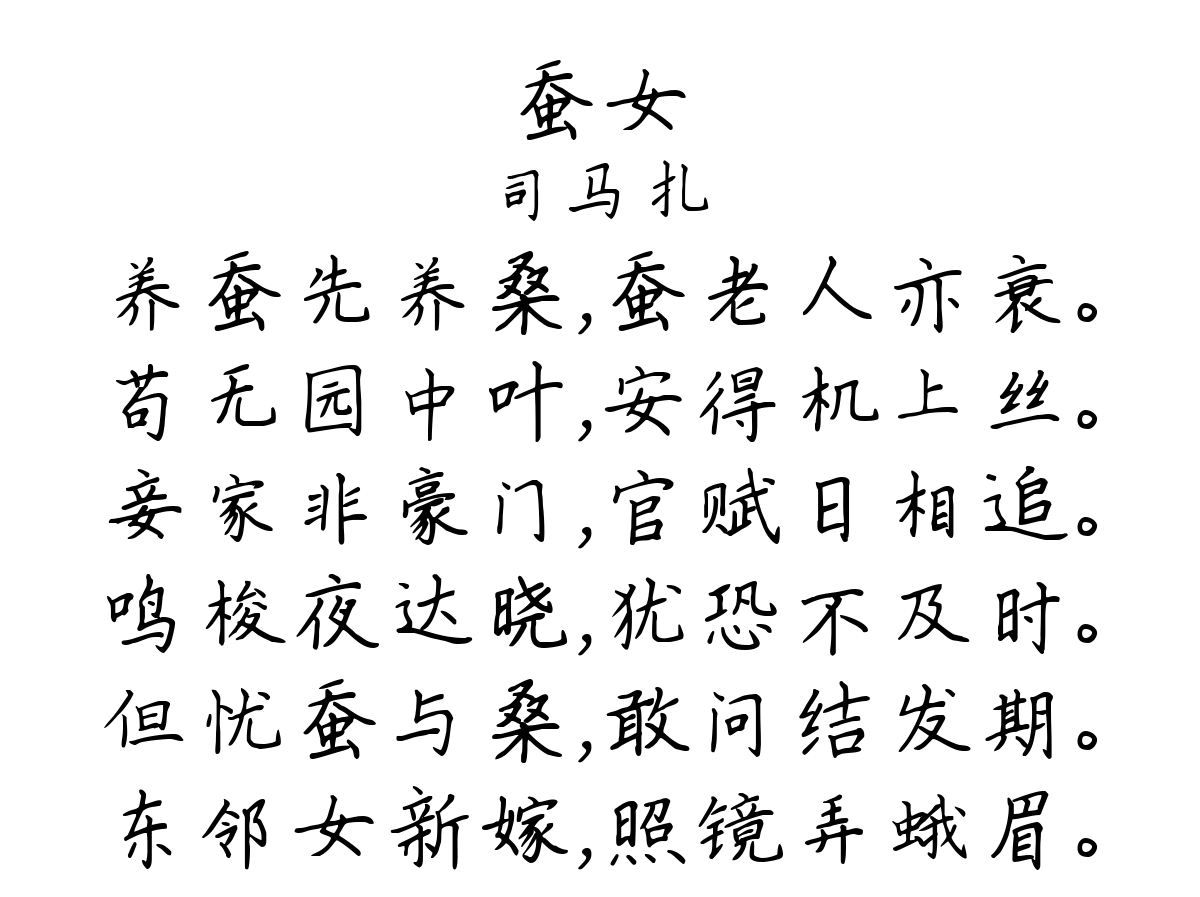 蚕女
司马扎
养蚕先养桑,蚕老人亦衰。
苟无园中叶,安得机上丝。
妾家非豪门,官赋日相追。
鸣梭夜达晓,犹恐不及时。
但忧蚕与桑,敢问结发期。
东邻女新嫁,照镜弄蛾眉。